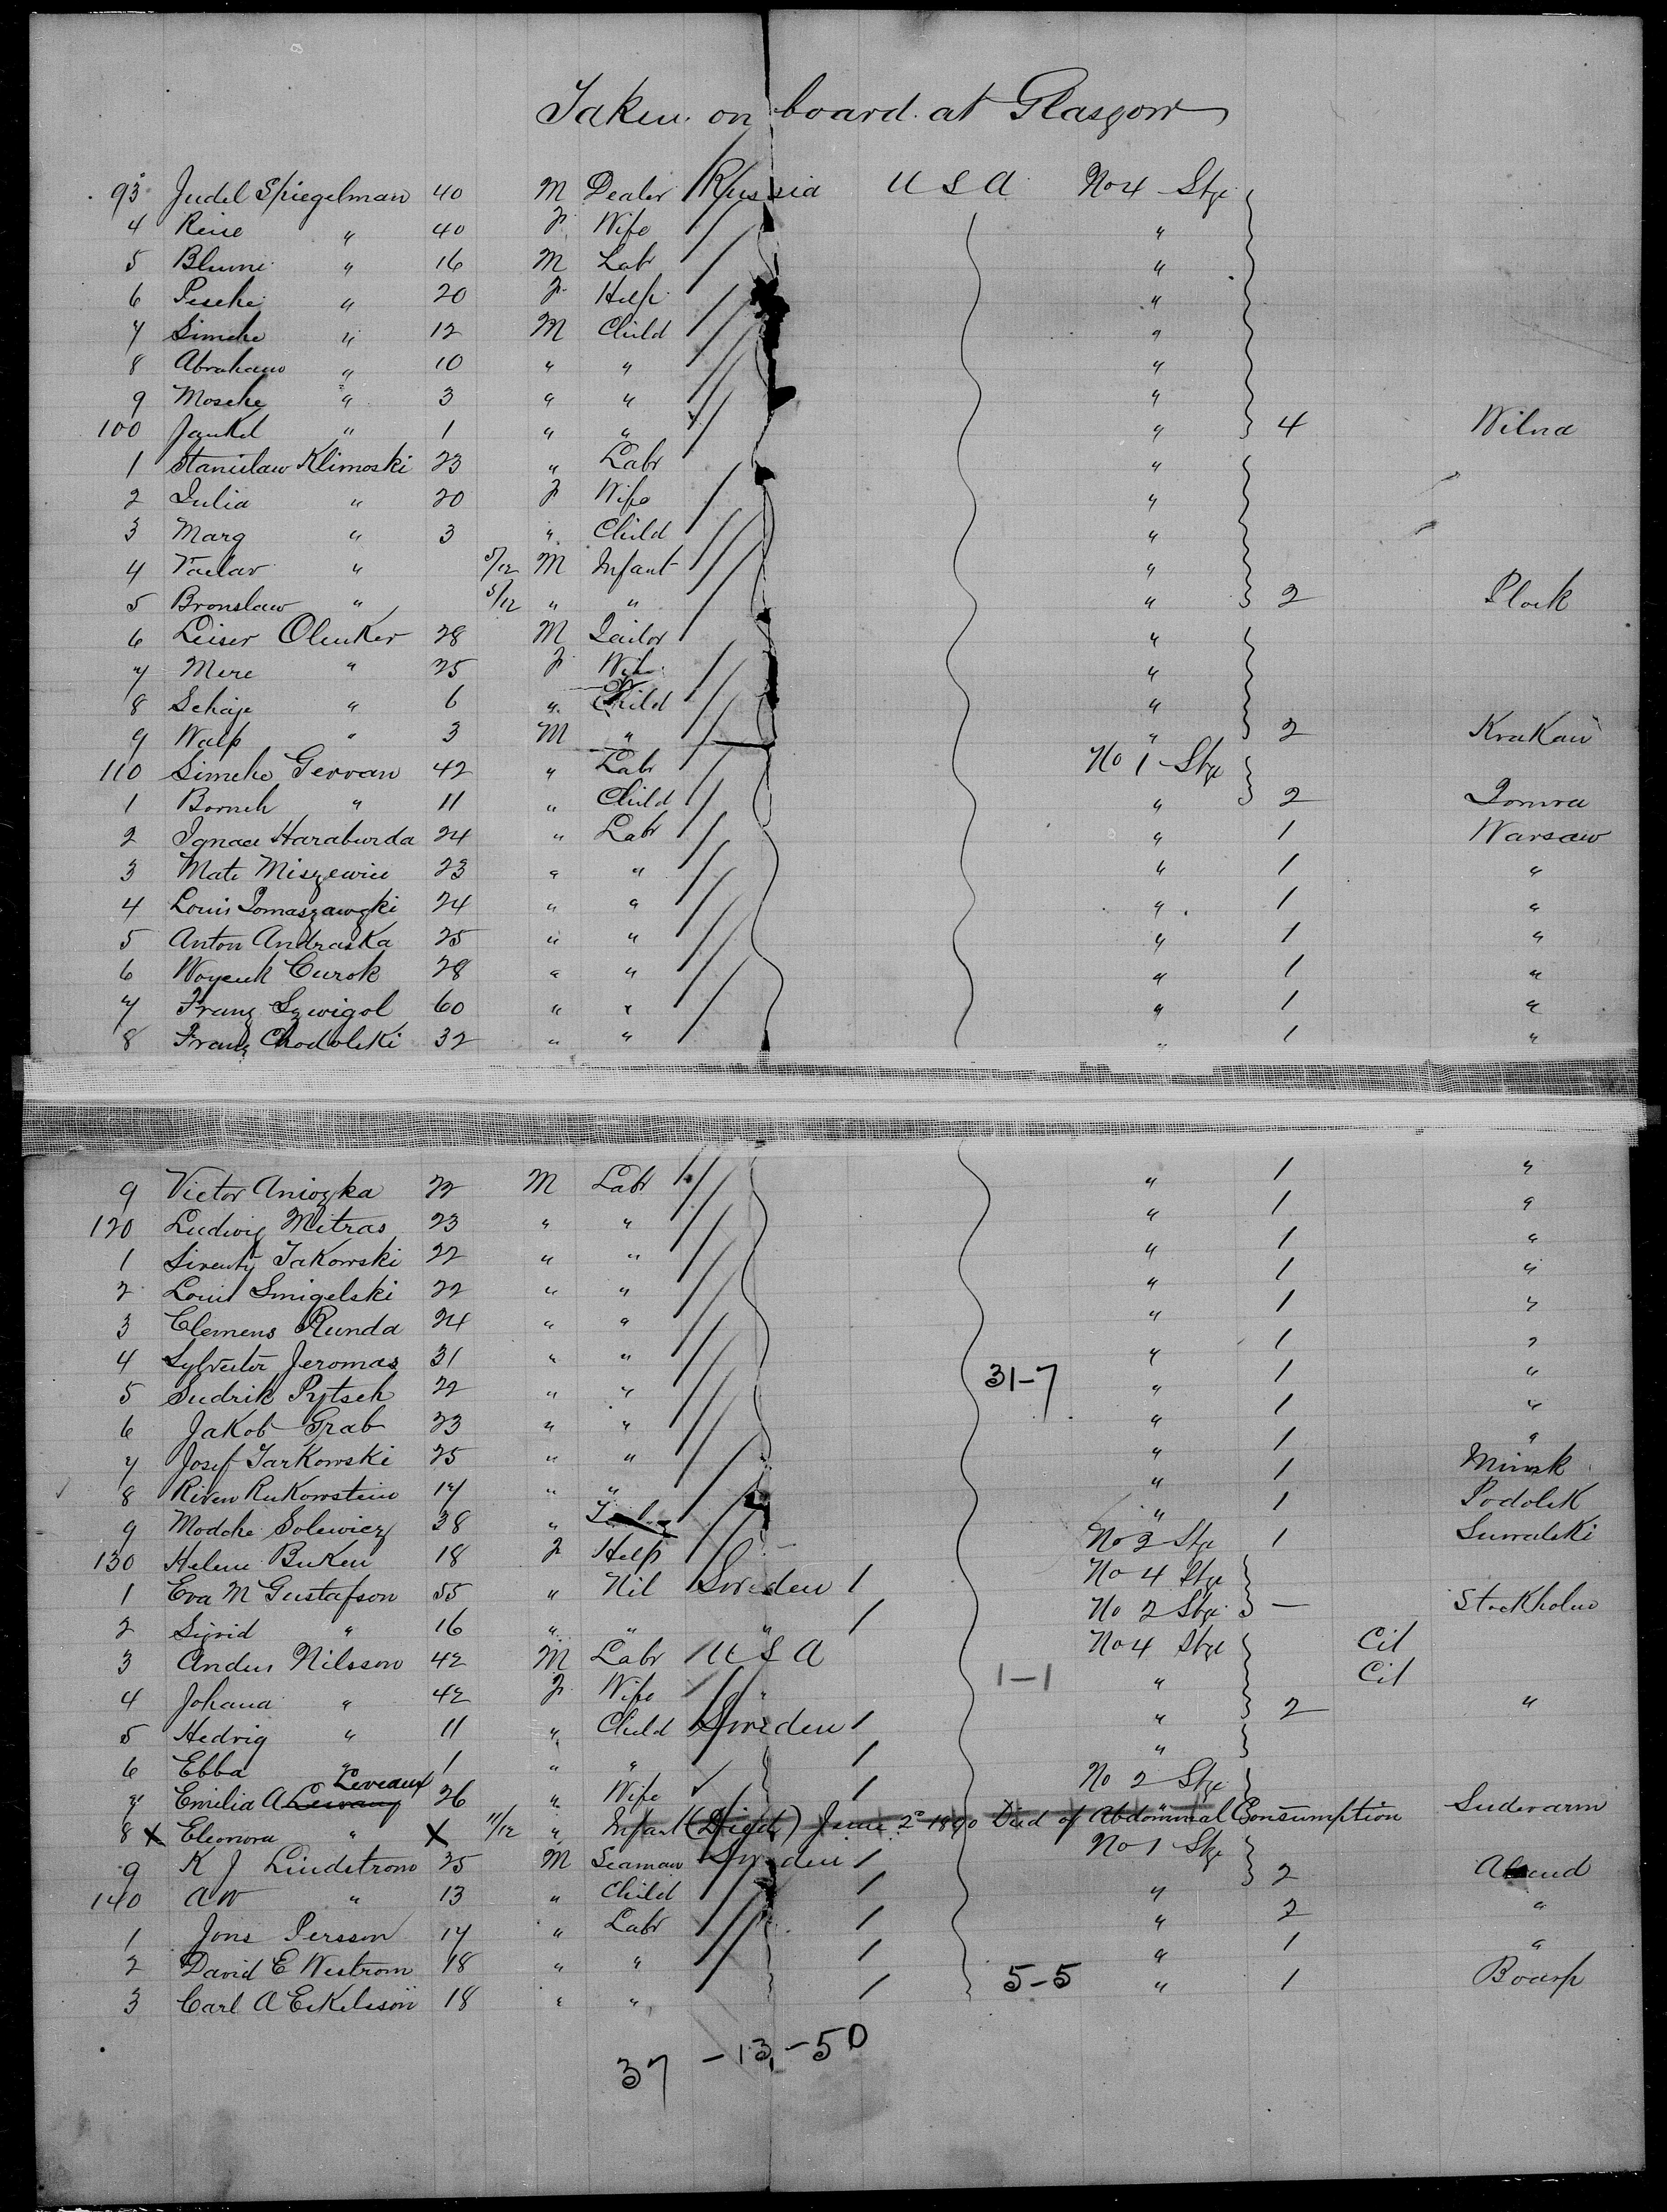 Taken on board at Glasgow
93 Judel Spiegelman 40 M Dealer Russia U S A No 4 Stge
4 Reise " 40 F Wife "
5 Blume " 16 M Labr "
6 Pesche " 20 F Help "
7 Simche " 12 M Child "
8 Abraham " 10 " " "
9 Mosche " 3 " " "
100 Jankel " 1 " " " 4 Wilna
1 Stanislaw Klimoski 23 " Labr "
2 Julia " 20 F Wife "
3 Marg " 3 " Child "
4 Vaclav " 5/12 M Infant "
5 Bronslaw " 5/12 " " " 2 Plock
6 Leiser Olenker 28 M Tailor "
7 Mere " 25 F Wife "
8 Schaje " 6 " Child "
9 Walf " 3 M " " 2 Krakau
110 Simche Gervan 42 " Labr No 1 Stge
1 Boruch " 11 " Child " 2 Lomva
2 Ignace Haraburda 24 " Labr " 1 Warsaw
3 Mate Miszewice 23 " " " 1 "
4 Louis Tomaszawski 24 " " " 1 "
5 Anton Andraska 25 " " " 1 "
6 Woycuk Curok 28 " " " 1 "
7 Franz Szwigol 60 " " " 1 "
8 Franz Chodolski 32 " " " 1 "
9 Victor Aniozka 22 M Labr " 1 "
120 Ludwig Mitras 23 " " " 1 "
1 Siventy Jakowski 22 " " " 1 "
2 Louis Smigelski 22 " " " 1 "
3 Clemens Runda 24 " " " 1 "
4 Sylvester Jeromas 31 " " " 1 "
5 Sudrik Pytsch 22 " " 31-7 " 1 "
6 Jakob Grab 23 " " " 1 "
7 Josef Tarkowski 25 " " " 1 "
8 Riven Rukowstein 17 " " " 1 Minsk
9 Modche Solewicz 38 " " 1 Podolsk
130 Helene Buken 18 F Help No 2 Stge 1 Suwalski
1 Eva M Gustafson 55 " Nil Sweden 1 No 4 Stge
2 Sigrid " 16 " " " 1 No 2 Stge — Stockholm
3 Andus Nilsson 42 M Labr U S A No 4 Stge Cit
4 Johana " 42 F Wife " 1-1 " Cit
5 Hedvig " 11 " Child Sweden 1 " 2 "
6 Ebba " 1 " " 1 "
7 Emilia A Leveaux 26 " Wife 1 No 2 Stge
8 X Eleonora " X 11/12 " Infant (Died) June 2d 1890 Died of Abdominal Consumption Sudvarm
9 K J Lindstrom 35 M Seaman Sweden 1 No 1 Stge
140 A W " 13 " Child 1 " 2 Alsund
1 Jons Persson 17 " Labr 1 " 2 "
2 David E Westrom 18 " " 1 " 1 "
3 Carl A Eskilsson 18 " " 1 5-5 " 1 Boarp
37 - 13 - 50